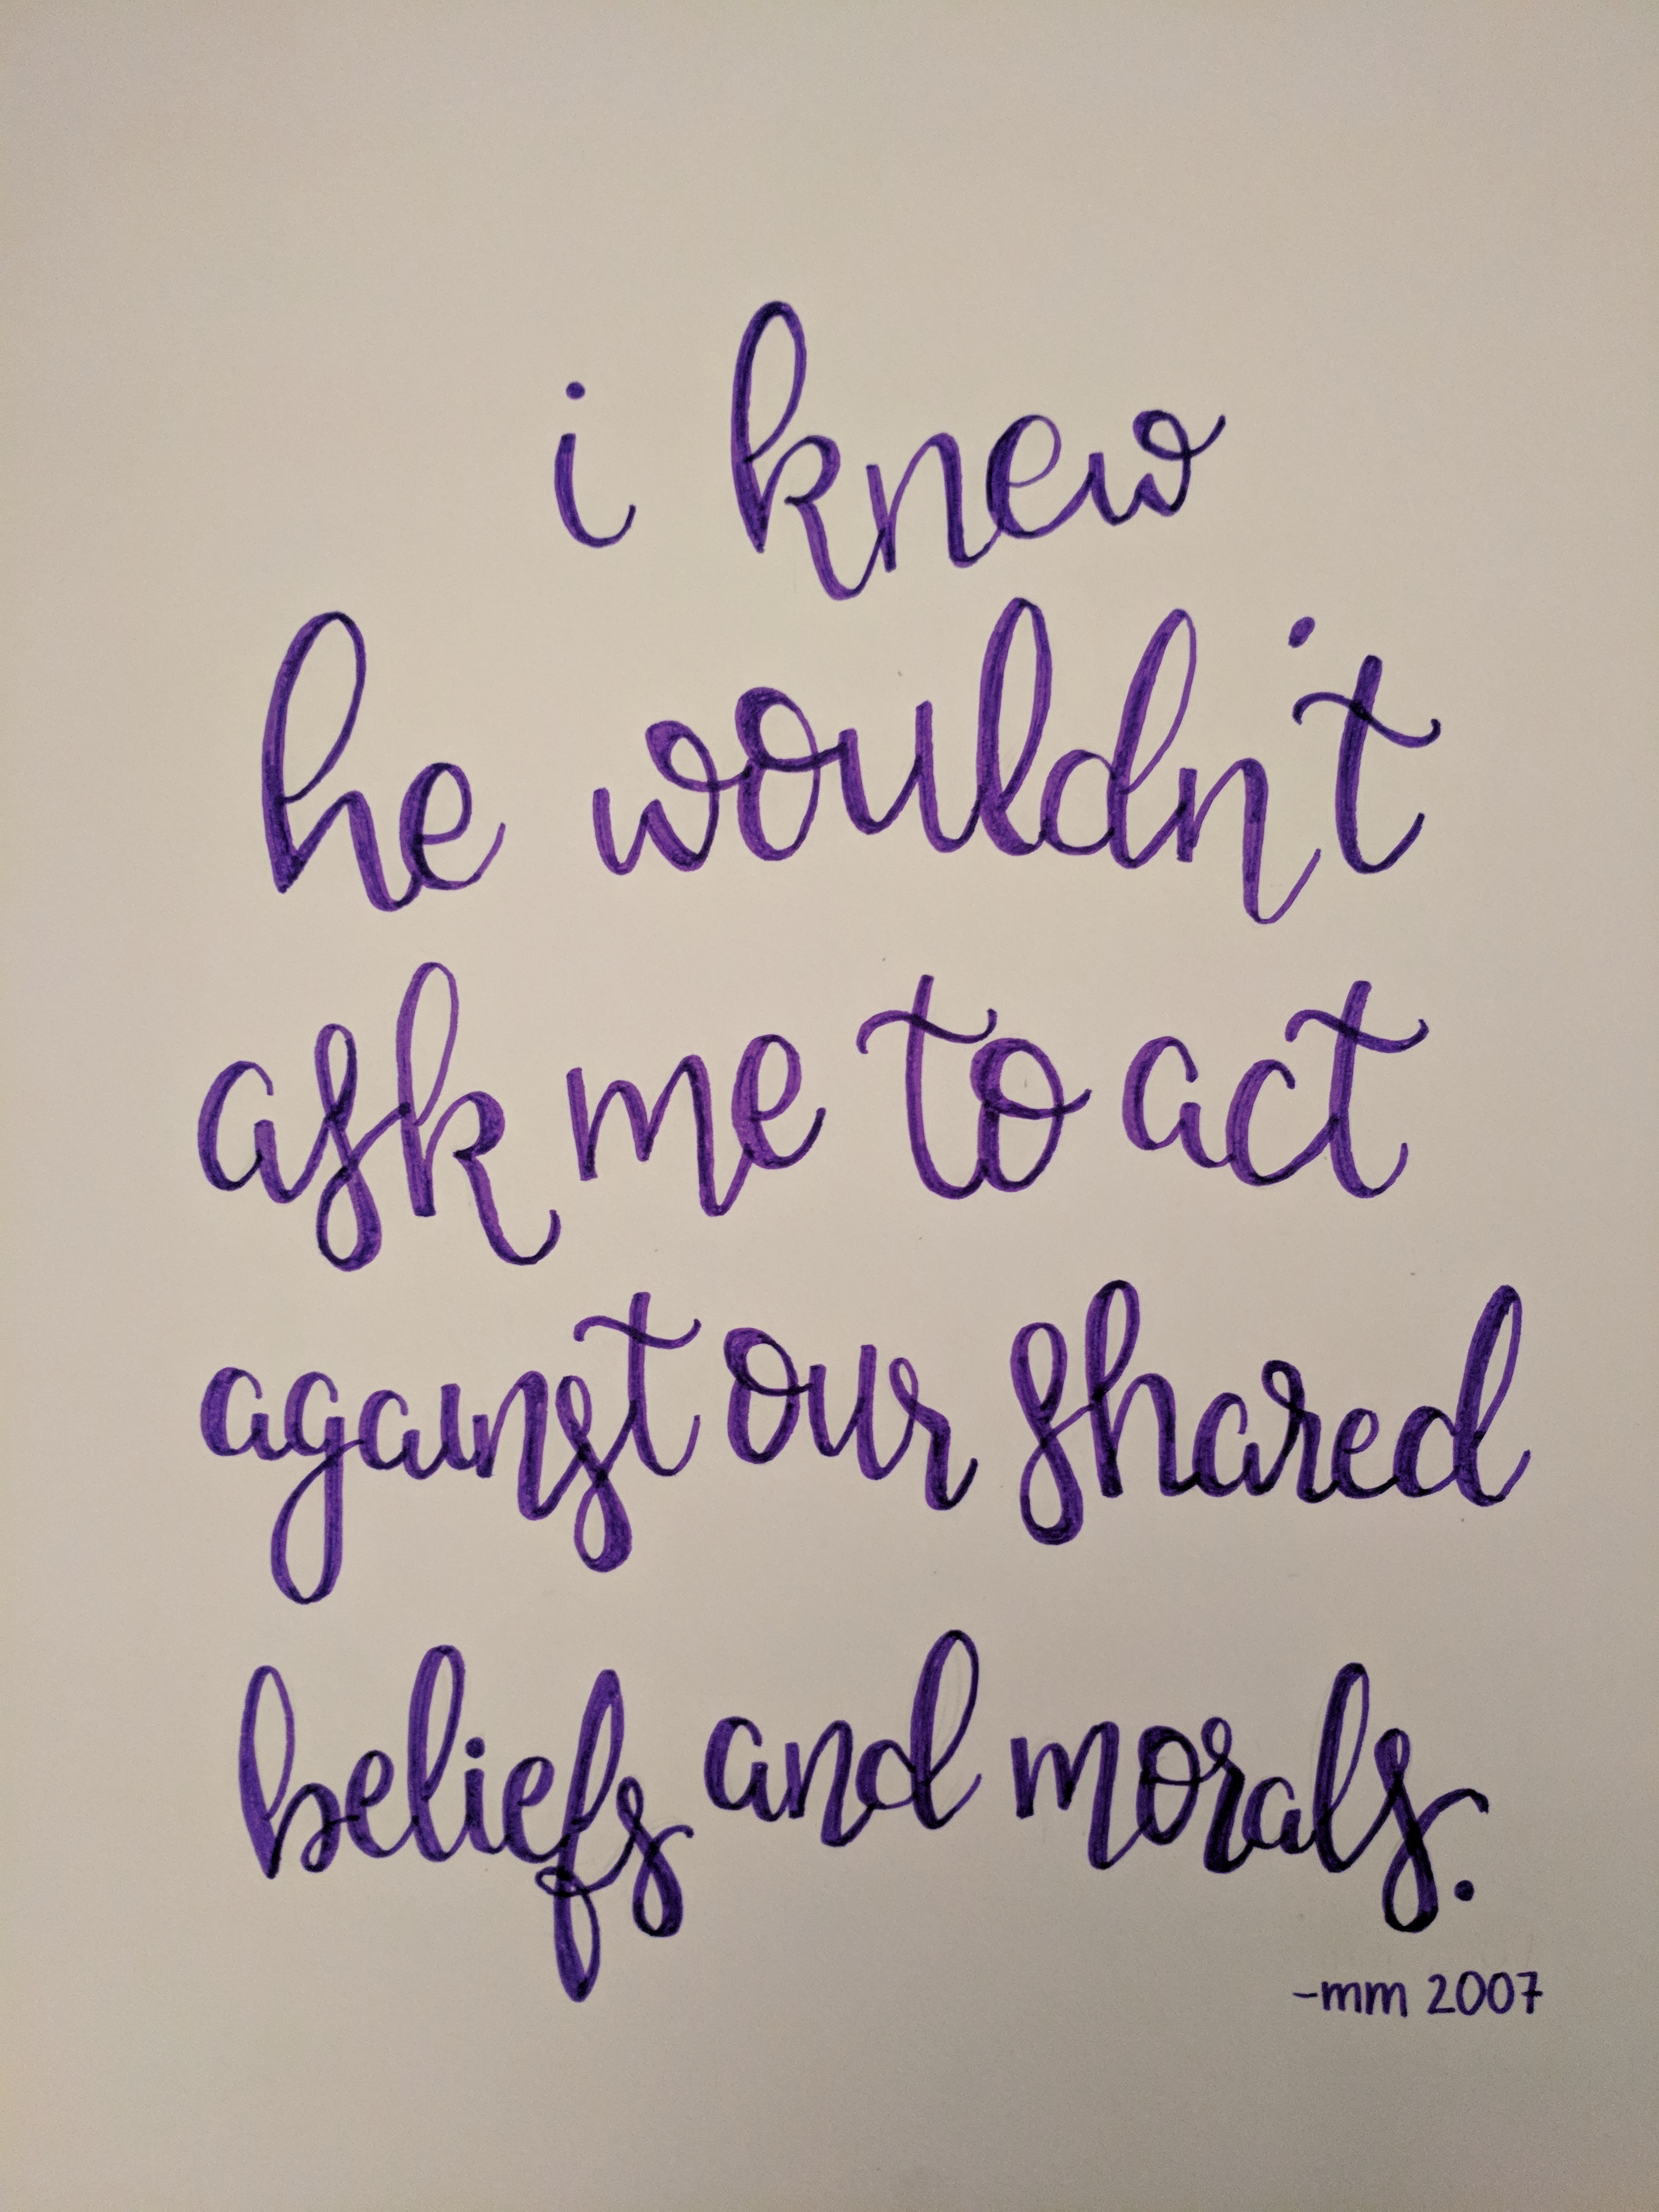 i knew
he wouldn't
ask me to act
against our shared
beliefs and morals.
-mm 2007